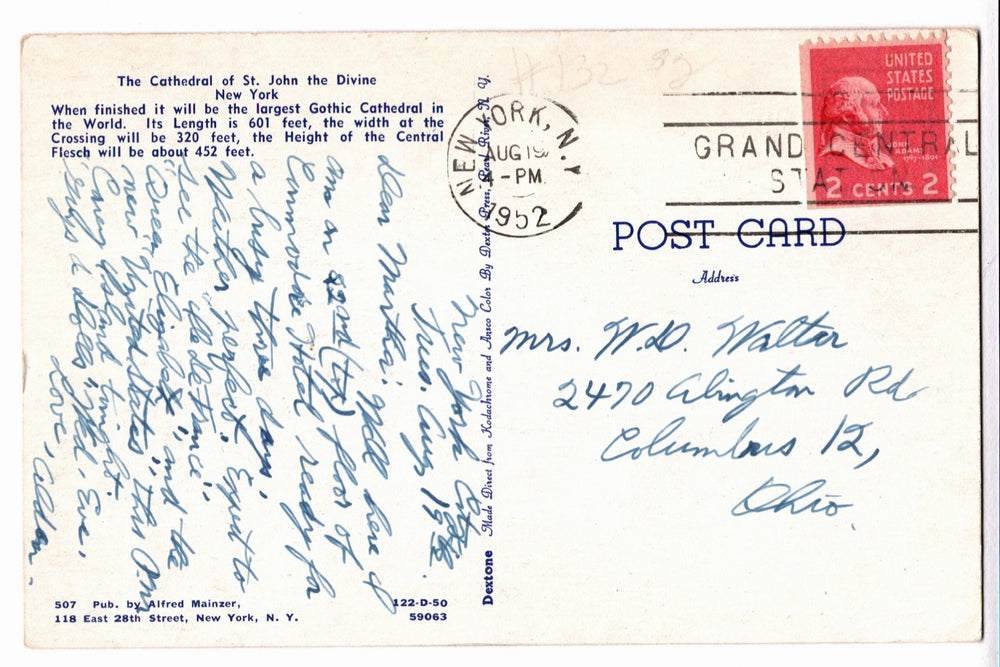 The Cathedral of St. John the Divine
New York
When finished it will be the largest Gothic Cathedral in
the World. Its Length is 601 feet, the width at the
Crossing will be 320 feet, the Height of the Central
Flesch will be about 452 feet.
New York City
Tues. Aug 19th
Dear Martha: Well here I
am on 22nd (try) floor of
Commodore Hotel ready for
a busy three days.
Weather perfect. Expect to
see the
"Queen Elizabeth", and the
new "United States", this P.M.
Coney Island tonight.
"Guys & dolls", Wed. Eve.
Love, Alden.
507 Pub. by Alfred Mainzer,
118 East 28th Street, New York, N. Y.
122-D-50
59063
Dextone Made Direct from Kodachrome and Ansco Color By Dexter Press, Pearl River, N. Y.
#132
NEW YORK, N.Y.
AUG 19
4-PM
1952
GRAND CENTRAL
STATION
UNITED
STATES
POSTAGE
JOHN
ADAMS
1797-1801
2 CENTS 2
POST CARD
Address
Mrs. W.D. Walter
2470 Abington Rd
Columbus 12,
Ohio.